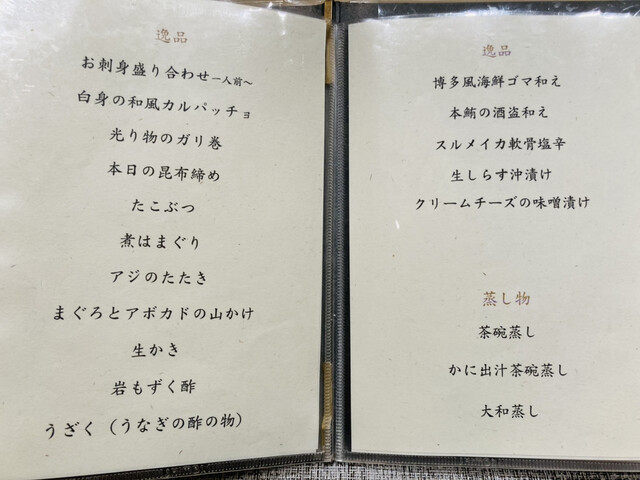 逸品
お刺身盛り合わせ一人前〜
白身の和風カルパッチョ
光り物のガリ巻
本日の昆布締め
たこぶつ
煮はまぐり
アジのたたき
まぐろとアボカドの山かけ
生かき
岩もずく酢
うざく（うなぎの酢の物）
逸品
博多風海鮮ゴマ和え
本鮪の酒盗和え
スルメイカ軟骨塩辛
生しらす沖漬け
クリームチーズの味噌漬け
蒸し物
茶碗蒸し
かに出汁茶碗蒸し
大和蒸し